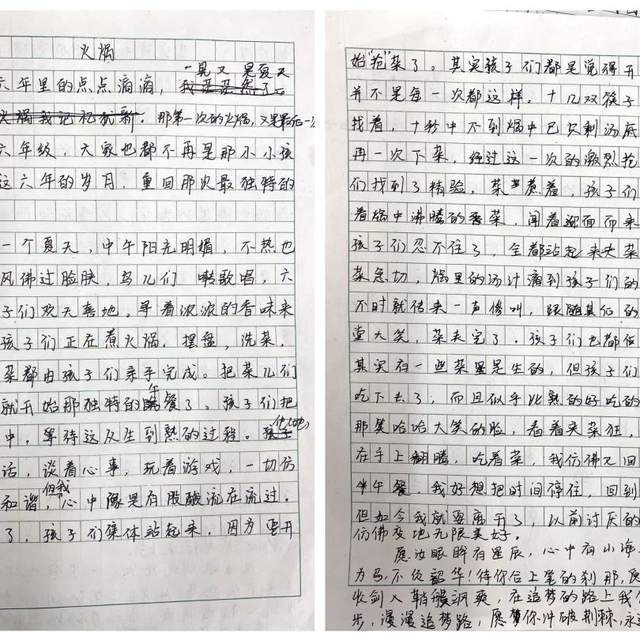 火焗
一晃又是夏天
六年里的点点滴滴，我
火焗我记忆犹新。那第一次的火焗，又是最后一次
六年级，大家也都不再是那小小孩
这六年的岁月，重回那次最独特的
一个夏天，中午阳光明媚，不热也
风佛过脸肤，鸟儿们歌唱，六
子们欢天喜地。寻着浓浓的香味来
孩子们正在煮火焗。摆盘，洗菜，
菜都由孩子们亲手完成。把菜儿们
就开始那独特的午餐了。孩子们把
中，等待这从生到熟的过程。孩子
他们也
话，谈着心事，玩着游戏，一切仿
和谐，但我心中像是有股酸流在流过。
了，孩子们集体站起来，因为要开
始“抢”菜了。其实孩子们都是觉得开
并不是每一次都这样。十几双筷子
找着，十秒中不到焗中已只剩汤底
再一次下菜，经过这一次的激烈抢
们找到了精验。菜煮着，孩子们
着焗中沸腾的香菜，闻着迎而而来
孩子们忍不住了，全都站起来夹菜
菜急切，焗里的汤汁滴到孩子们的
不时就传来一声惨叫，跟随其他的
堂大笑，菜夹完了。孩子们也都
其实有一些菜是生的，但孩子们
吃下去了，而且似乎比熟的好吃的
那笑哈哈大笑的脸，看着夹菜狂，
在手上翻腾，吃着菜，我仿佛又回
午餐，我好想把时间停住，回到
但如今我就要离开了，以前讨厌的
仿佛友地无限美好。
愿汝眼眸有星辰，心中有山海
为马，不负韶华！待你合上笔的刹那，
收剑入鞘般飒爽，在追梦的路上我
步，漫漫追梦路，愿你冲破荆棘，永